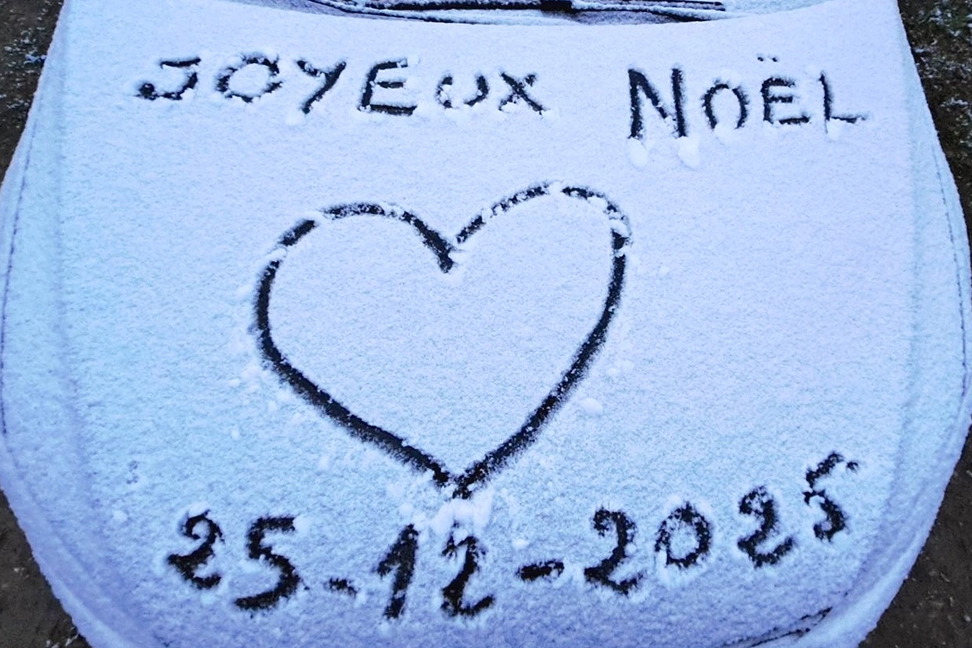 JOYEUX NOËL
25-12-2025